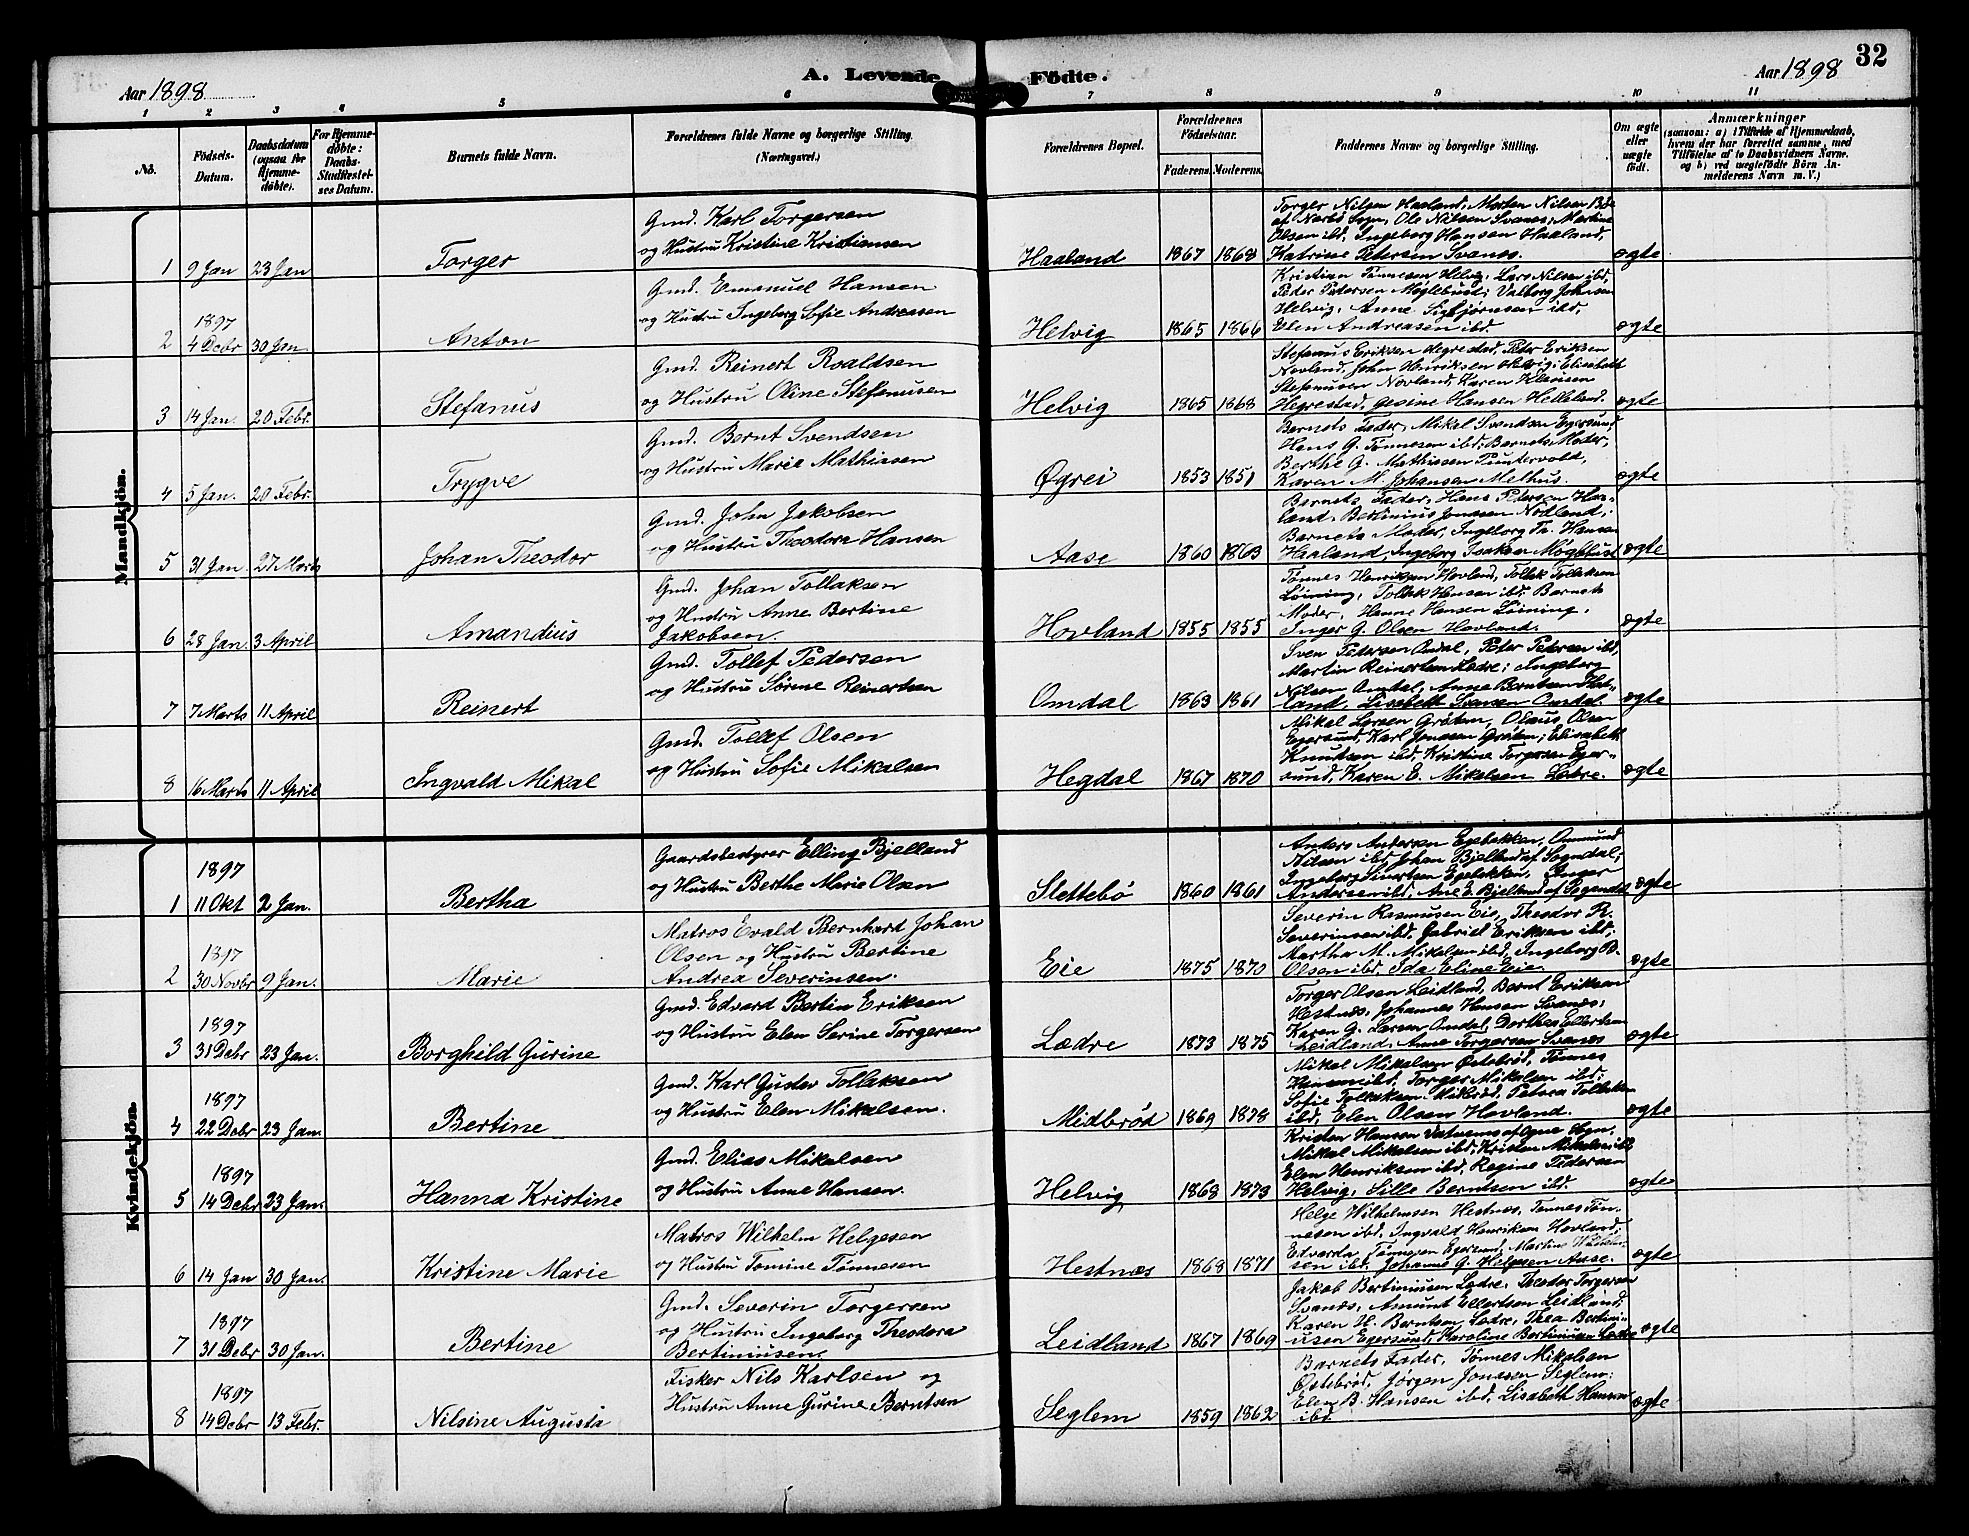 Aar 1898
A. Levende Fødte.
Aar 1898
32
1 2 3 4 5 6 7 8 9 10 11
No.
Fødsels-Datum.
Daabsdatum (ogsaa for Hjemme-døbte).
For Hjemme-døbte: Daabs-Stadfæstel-ses Datum.
Barnets fulde Navn.
Forældrenes fulde Navne og borgerlige Stilling.
(Næringsvei.)
Forældrenes Bopæl.
Forældrenes Fødselsaar.
Faderens. Moderens.
Faddernes Navne og borgerlige Stilling.
Om ægte eller uægte født.
Anmærkninger
(saasom: a) i Tilfælde af Hjemmedaab,
hvem der har forrettet samme, med
Tilføielse af to Daabsvidners Navne.
og b) ved uægtefødte Børn An-
melderens Navn m. V.)
Mandkjøn.
1 9 Jan 23 Jan Torger
Gmd. Karl Torgersen
og Hustru Kristine Kristiansen
Haaland 1867 1868
Torger Nilsen Haaland, Morten Nilsen
af Nærbø Sogn, Ole Nilsen Svanes; Martine
Olsen ibd, Ingeborg Hansen Haaland,
Katrine Petersen Svanes.
ægte
2 1897 4 Debr 30 Jan Anton
Gmd. Emanuel Hansen
og Hustru Ingeborg Sofie Andreassen
Helvig 1865 1866
Kristian Tønnesen Helvig, Lars Nilsen ibd,
Peder Pedersen Møglebust; Valborg Johnsen
Helvig, Anne Sigbjørnsen ibd,
Elen Andreasen ibd.
ægte
3 14 Jan. 20 Febr. Stefanus
Gmd. Reinert Roaldsen
og Hustru Oline Stefanusen
Helvig 1865 1868
Stefanus Eriksen Hegrestad, Peter Eriksen
Novland, John Henriksen Helvig; Elisabeth
Stefanusen Novland, Karen Klausen
Hegrestad, Gesine Hansen Helleland.
ægte
4 5 Jan. 20 Febr. Trygve
Gmd. Bernt Svendsen
og Hustru Maria Mathiasen
Øgrei 1853 1851
Barnets Fader, Mikal Svendsen Egersund
Hans G. Tønnesen ibd; Barnets Moder,
Berthe G. Mathiasen Puntervold,
Karen M. Johansen Melhus.
ægte
5 31 Jan. 27 Marts Johan Theodor
Gmd. John Jakobsen
og Hustru Theodora Hansen
Aase 1860 1863
Barnets Fader, Hans Petersen Haa-
land, Bertinius Jonassen Nodland;
Barnets Moder, Ingeborg Th. Hansen
Haaland, Ingeborg Isaksen Møglebust
ægte
6 28 Jan. 3 April Amandius
Gmd. Johan Tollaksen
og Hustru Anne Bertine
Jakobsen.
Hovland 1855 1855
Tønnes Henriksen Hovland, Tollak Tollaksen
Løining, Tollak Hansen ibd. Barnets
Moder, Hanne Hansen Løining,
Inger G. Olsen Hovland.
ægte
7 7 Marts 11 April Reinert
Gmd. Tollef Pedersen
og Hustru Sørene Reinertsen
Omdal 1863 1861
Sven Pedersen Omdal, Peter Petersen ibd,
Martin Reinertsen Lædre; Ingeborg
Nilsen Omdal, Anne Berntsen
land, Lisabeth Svensen Omdal.
ægte
8 16 Marts 11 April Ingvald Mikal
Gmd. Tollef Olsen
og Hustru Sofie Mikalsen
Hegdal 1867 1870
Mikal Larsen Grøtem, Olaus Olsen
Egersund, Karl Jonassen Grøtem; Elisabeth
Knudsen ibd, Kristine Torgersen Eger-
sund, Karen E. Mikalsen Lædre.
ægte
Kvindekjøn.
1 1897 11 Okt 2 Jan. Bertha
Gaardsbestyrer Elling Bjelland
og Hustru Berthe Marie Olsen
Slettebø 1860 1861
Anders Andersen Egebakken, Ommund
Nilsen ibd, Johan Bjelland af Sogndal;
Ingeborg Sivertsen Egebakken, Inger
Andersen ibd, Ane E. Bjelland af Sogndal
ægte
2 1897 30 Novbr 9 Jan. Marie
Matros Evald Bernhart Johan
Olsen og Hustru Bertine
Andrea Severinsen.
Eie 1875 1870
Severin Rasmusen Eie, Theodor R.
Severinsen ibd, Gabriel Eriksen ibd;
Martha M. Mikalsen ibd, Ingeborg B.
Olsen ibd. Ida Eline Eie
ægte
3 1897 31 Debr 23 Jan. Borghild Gurine
Gmd. Edvard Bertin Eriksen
og Hustru Elen Serine Torgersen
Lædre 1873 1875
Torger Olsen Leidland, Bernt Eriksen
Hestnæs, Johannes Hansen Svanes;
Karen G. Larsen Omdal, Dorthea Ellertsen
Leidland, Anne Torgersen Svanes
ægte
4 1897 22 Debr 23 Jan. Bertine
Gmd. Karl Gustav Tollaksen
og Hustru Elen Mikalsen.
Midbrød 1869 1878
Mikal Mikalsen Østebrød, Tønnes
Hansen ibd, Torger Mikalsen ibd;
Sofie Tollaksen Midbrød, Petrea Tollaksen
ibd, Elen Olsen Hovland.
ægte
5 1897 14 Debr 23 Jan. Hanna Kristine
Gmd. Elias Mikalsen
og Hustru Anne Hansen.
Helvig 1868 1873
Kristen Hansen Vatnemo af Ogne Sogn,
Mikal Mikalsen ibd, Kristen Mikalsen ibd
Elen Henriksen ibd, Regine Pedersen
Helvig, Lille Berntsen ibd.
ægte
6 14 Jan 30 Jan. Kristine Marie
Matros Wilhelm Helgesen
og Hustru Tomine Tønnesen
Hestnæs 1868 1871
Helge Wilhelmsen Hestnæs, Tønnes Tøn-
nesen ibd, Ingvald Henriksen Hovland;
Edvarda Tønnesen Egersund, Martine Wilhelm-
sen ibd. Johanne G. Helgesen Aase.
ægte
7 1897 31 Debr 30 Jan. Bertine
Gmd. Severin Torgersen
og Hustru Ingeborg Theodora
Bertiniusen.
Leidland 1867 1869
Jakob Bertiniusen Lædre, Theodor Torgersen
Svanæs, Amunt Ellertsen Leidland;
Karen H. Berntsen Lædre, Thea Bertini-
usen Egersund, Karoline Bertiniusen Lædre
ægte
8 1897 14 Debr 13 Febr. Nilsine Augusta
Fisker Nils Karlsen og
Hustru Anne Gurine Berntsen
Seglem 1859 1862
Barnets Fader, Tønnes Mikalsen
Østebrød, Jørgen Jonassen Seglem;
Elen B. Hansen ibd, Lisabeth Hansen
ibd.
ægte